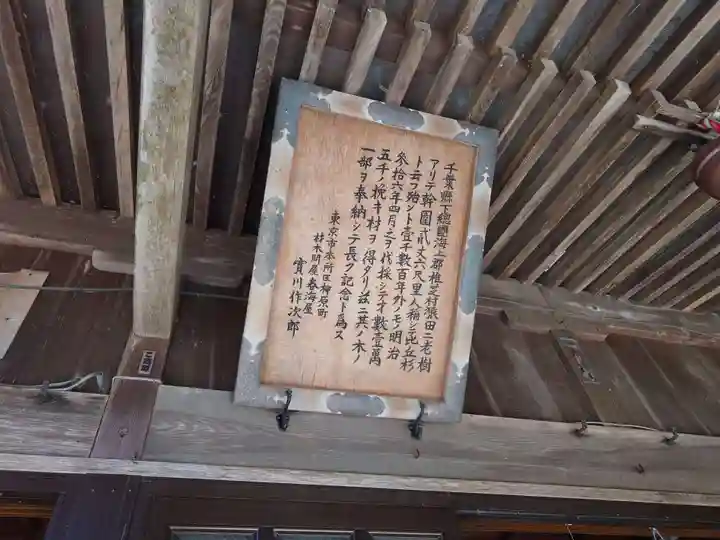 千葉縣下總國海上郡椎芝村猿田ニ老樹
アリテ幹圍弐丈六尺里人稱シテ比丘杉
ト云フ殆ント壹千數百年外ノモノ明治
參拾六年四月之ヲ伐採シテ才數壹萬
五千ノ挽キ材ヲ得タリ茲ニ其ノ木ノ
一部ヲ奉納シテ長ク記念ト爲ス
東京市本所區柳原町
材木問屋春海屋
實川作次郎